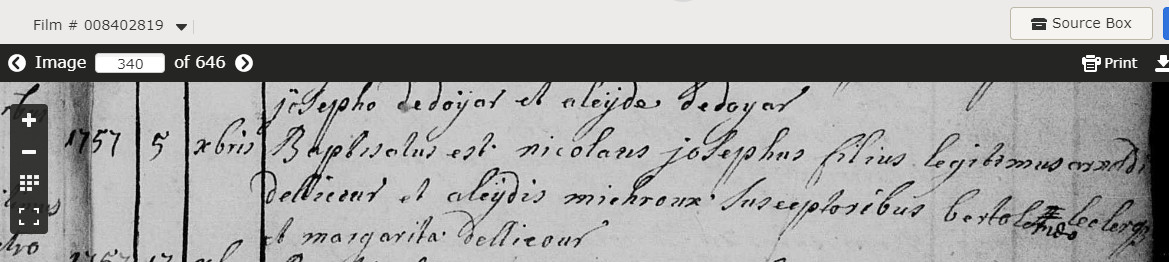 Film # 008402819
Source Box
Image 340 of 646
Print
josepho dedoyar et aleÿde dedoyar
1757 5 xbris Baptisatus est nicolaus josephus filius legitimus arnoldi
dellieour et aleÿdis michroux susceptoribus bertol leclerq
et margarita dellieour